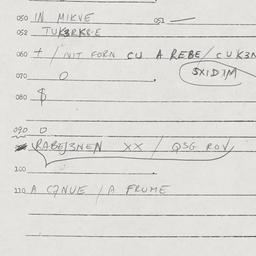 050 IN MIKVE 051 —
052 TUK3RK8-E
060 + / NIT FORN CU A REBE / CUK3N
070 O
SXID3M
080 $
090 O
RABEJ3NEN XX / QSG ROV
100
110 A C7NUE / A FRUME